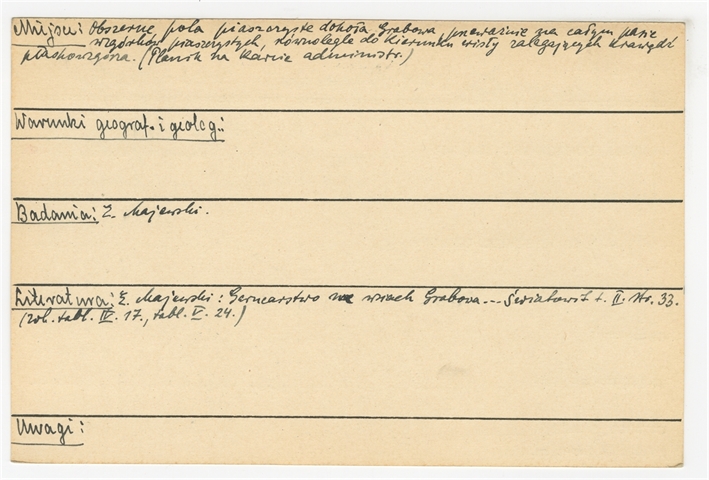 Miejsce: Obszerne pola piaszczyste dokoła Grabowa, przeważnie na całym pasie
wzgórków piaszczystych, równolegle do kierunku Wisły zalegających krawędź
płaskowzgórza. (Planik na karcie administr.)
Warunki geograf. i geolog.:
Badania: E. Majewski.
Literatura: E. Majewski: Garncarstwo we wsiach Grabowa... Światowit t. II. str. 33.
(zob. tabl. IV. 17., tabl. V. 24.)
Uwagi: